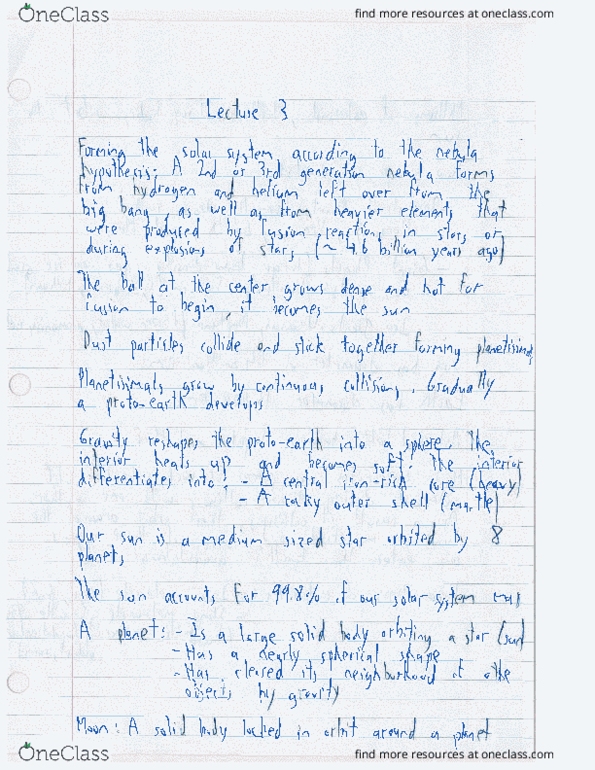 OneClass
find more resources at oneclass.com
Lecture 3
Forming the solar system according to the nebula
hypothesis: A 2nd or 3rd generation nebula forms
from hydrogen and helium left over from the
big bang, as well as from heavier elements that
were produced by fusion reactions in stars or
during explosions of stars, (~ 4.6 billion years ago)
The ball at the center grows dense and hot for
fusion to begin, it becomes the sun
Dust particles collide and stick together forming planetisimals
Planetisimals grow by continuous collisions. Gradually
a proto-earth develops
Gravity reshapes the proto-earth into a sphere. The
interior heats up and becomes soft. The interior
differentiates into: - A central iron-rich core (heavy)
- A rocky outer shell (mantle)
Our sun is a medium sized star orbited by 8
planets
The sun accounts for 99.8% of our solar system mass
A planet: - Is a large solid body orbiting a star (sun)
- Has a nearly spherical shape
- Has cleared its neighborhood of othe
objects by gravity
Moon: A solid body locked in orbit around a planet
OneClass
find more resources at oneclass.com